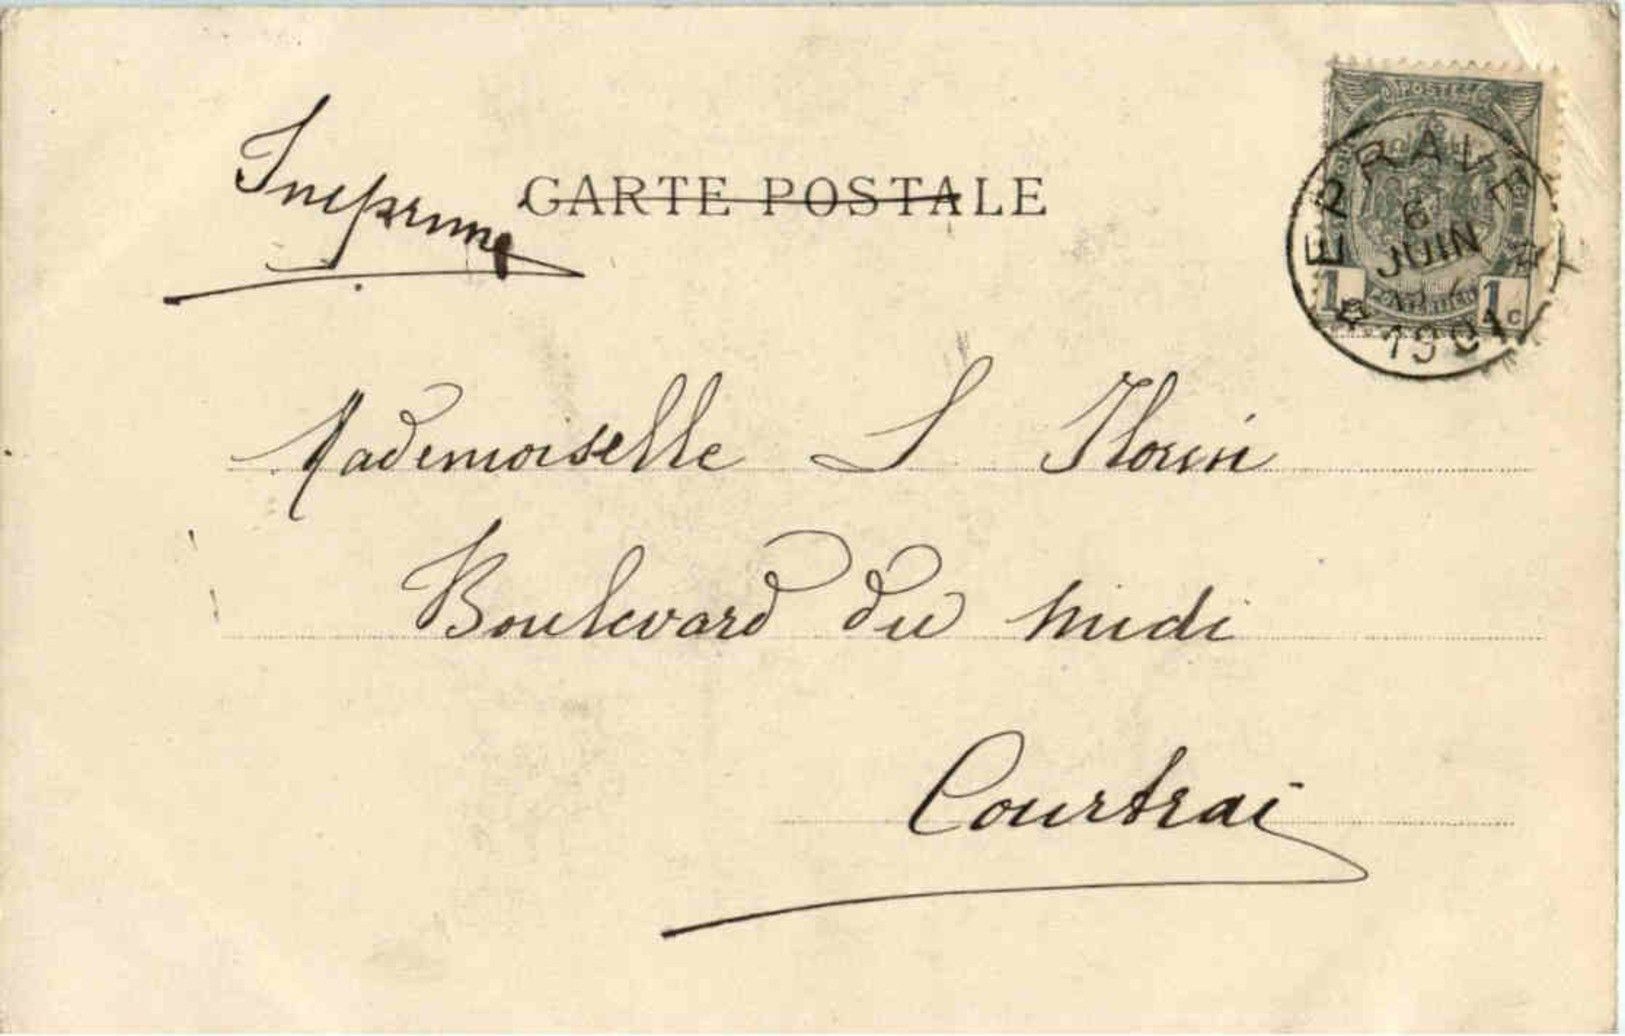 Imprimé CARTE POSTALE
POSTES
6
JUIN
1 1c
Mademoiselle S Florin
Boulevard du Midi
Courtrai